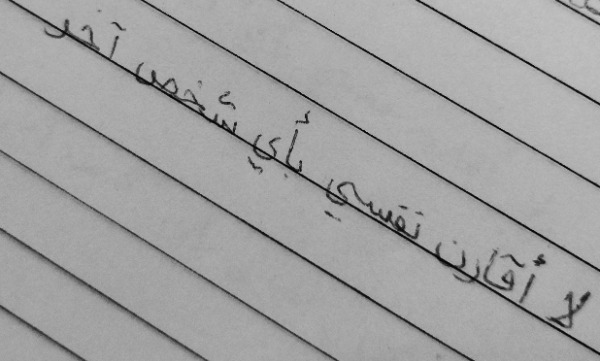 لا أقارن نفسي بأي شخص آخر